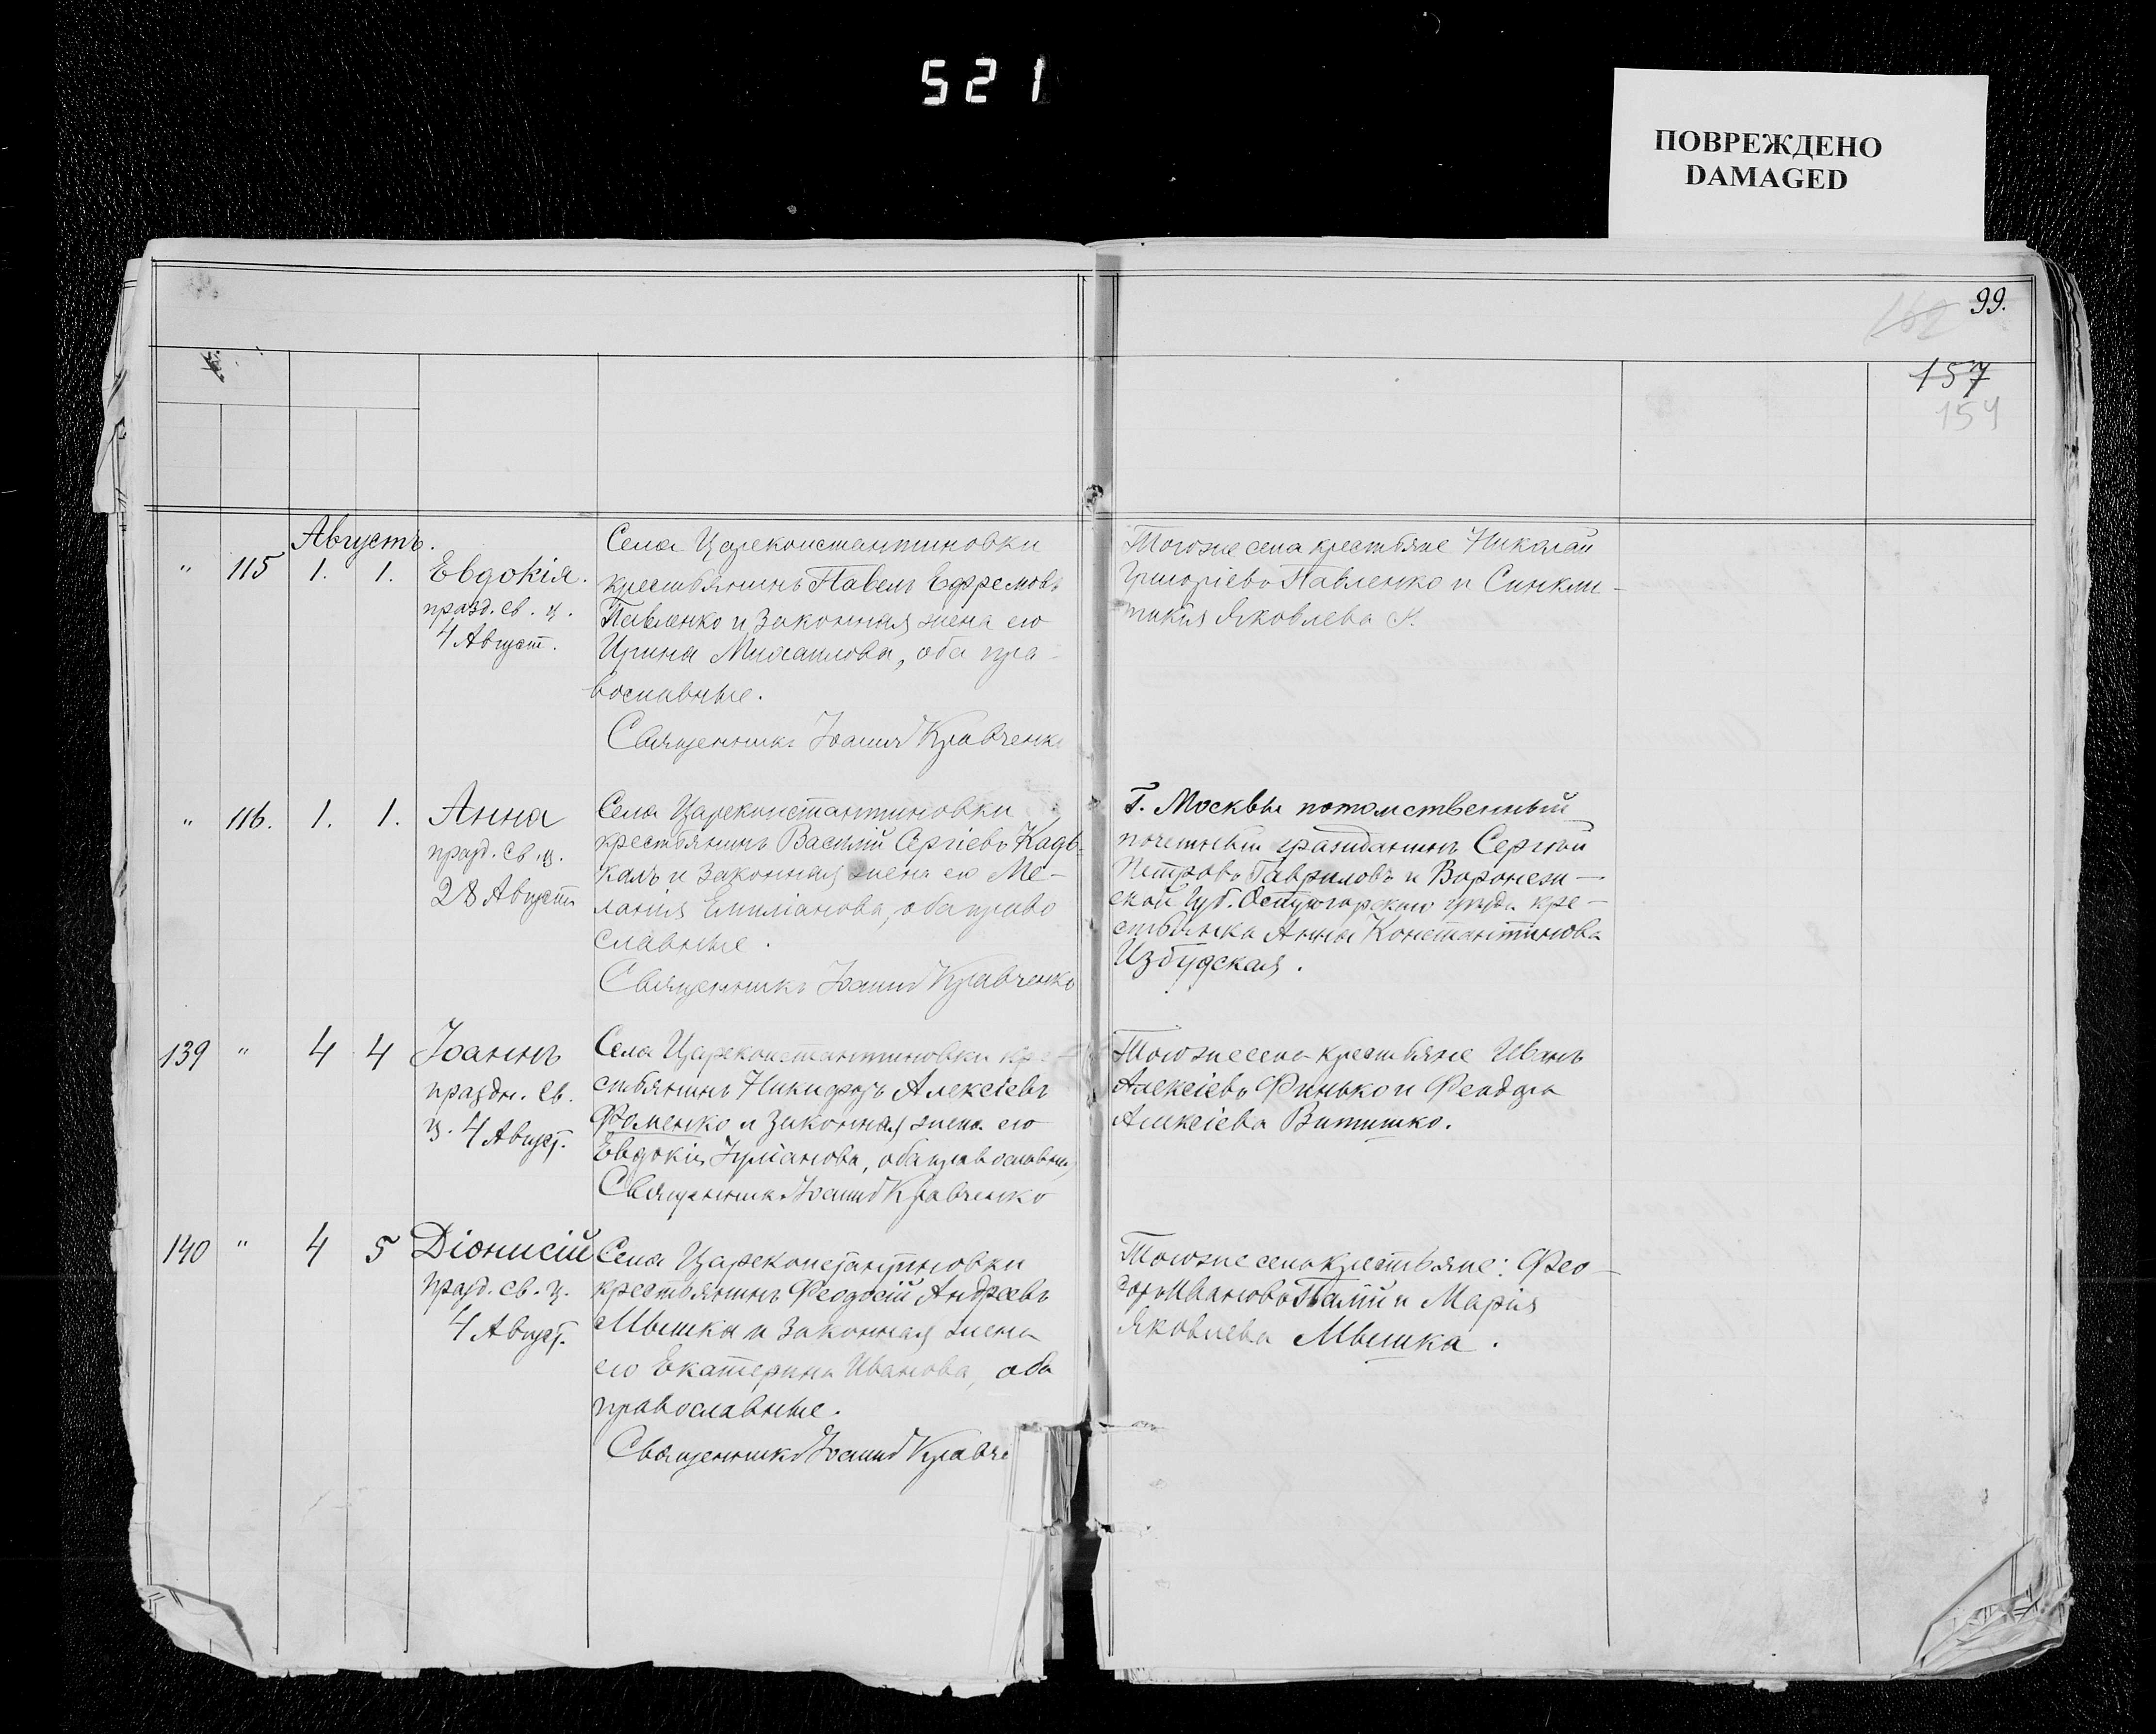 521
ПОВРЕЖДЕНО
DAMAGED
99.
162
157
154
Августъ.
" 115 1. 1. Евдокія.
празд. св. ц.
4 Август.
Села Цареконстантиновки
крестьянинъ Павелъ Ефремовъ
Павленко и законная жена его
Ирина Михаилова, оба пра-
вославные.
Священникъ Іоаннъ Кравченко
Тогоже села крестьяне Николай
Григоріевъ Павленко и Синкли-
тикія Яковлева
" 116. 1. 1. Анна
празд. св. ц.
28 Август
Села Цареконстантиновки
крестьянинъ Василій Сергіевъ Кадь-
калъ и законная жена его Ме-
ланія Емиліанова, оба право
славные.
Священникъ Іоаннъ Кравченко
Г. Москвы потомственный
почетный гражданинъ Сергій
Петровъ Гавриловъ и Воронеж-
ской Губ. Острогорскаго уѣзда кре-
стьянка Анна Константинова
Избудская.
139 " 4 4 Іоаннъ
праздн. св.
ц. 4 Август.
Села Цареконстантиновки кре-
стьянинъ Никифоръ Алексіевъ
Фоменко и законная жена его
Евдокія Іуліанова, оба православны
Священникъ Іоаннъ Кравченко
Тогоже села крестьяне Иванъ
Алексіевъ Финько и Феодора
Алексіева Витишко.
140 " 4 5 Діонисій
празд. св. ц.
4 Август.
Села Цареконстантиновки
крестьянинъ Феодосій Андреевъ
Мышка и законная жена
его Екатерина Иванова, оба
православные.
Священникъ Іоаннъ Кравче
Тогоже села крестьяне: Фео-
доръ Ивановъ Палій и Марія
Яковлева Мышка.